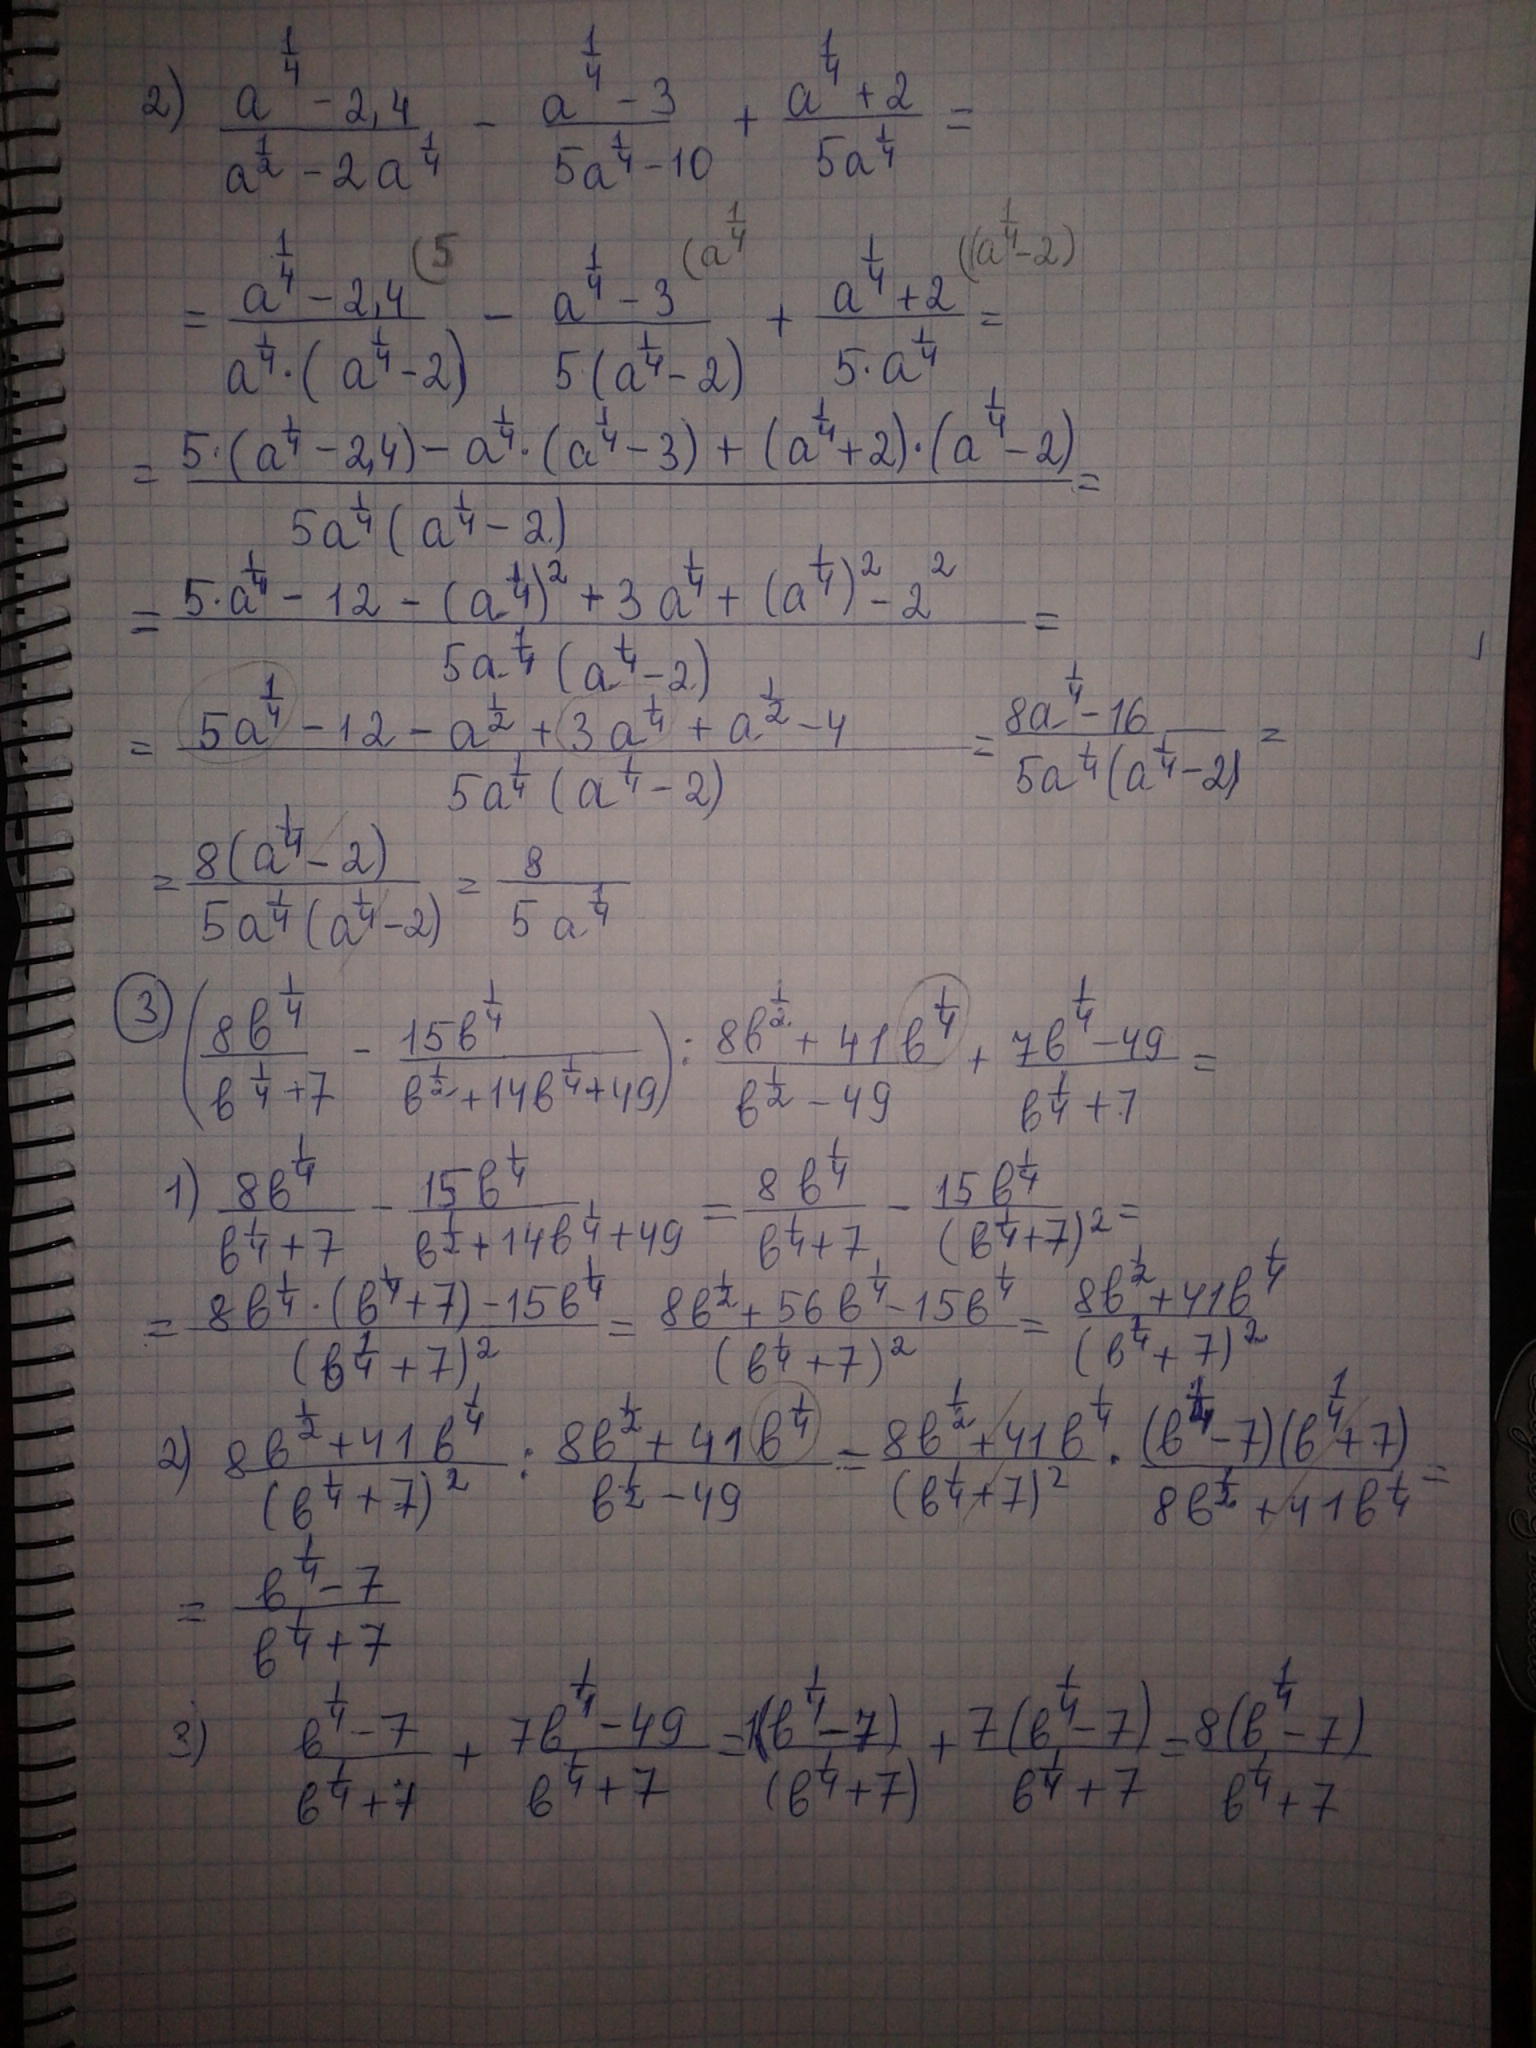 2) (a^(1/4) - 2,4)/(a^(1/2) - 2a^(1/4)) - (a^(1/4) - 3)/(5a^(1/4) - 10) + (a^(1/4) + 2)/(5a^(1/4)) =
= (a^(1/4) - 2,4)/(a^(1/4)·(a^(1/4) - 2)) (5 - (a^(1/4) - 3)/(5(a^(1/4) - 2)) (a^(1/4) + (a^(1/4) + 2)/(5·a^(1/4)) ((a^(1/4) - 2) =
= (5·(a^(1/4) - 2,4) - a^(1/4)·(a^(1/4) - 3) + (a^(1/4) + 2)·(a^(1/4) - 2))/(5a^(1/4)(a^(1/4) - 2)) =
= (5·a^(1/4) - 12 - (a^(1/4))^2 + 3a^(1/4) + (a^(1/4))^2 - 2^2)/(5a^(1/4)(a^(1/4) - 2)) =
= (5a^(1/4) - 12 - a^(1/2) + 3a^(1/4) + a^(1/2) - 4)/(5a^(1/4)(a^(1/4) - 2)) = (8a^(1/4) - 16)/(5a^(1/4)(a^(1/4) - 2)) =
= (8(a^(1/4) - 2))/(5a^(1/4)(a^(1/4) - 2)) = 8/(5a^(1/4))
3 ((8в^(1/4))/(в^(1/4) + 7) - (15в^(1/4))/(в^(1/2) + 14в^(1/4) + 49)) : (8в^(1/2) + 41в^(1/4))/(в^(1/2) - 49) + (7в^(1/4) - 49)/(в^(1/4) + 7) =
1) (8в^(1/4))/(в^(1/4) + 7) - (15в^(1/4))/(в^(1/2) + 14в^(1/4) + 49) = (8в^(1/4))/(в^(1/4) + 7) - (15в^(1/4))/((в^(1/4) + 7)^2) =
= (8в^(1/4)·(в^(1/4) + 7) - 15в^(1/4))/((в^(1/4) + 7)^2) = (8в^(1/2) + 56в^(1/4) - 15в^(1/4))/((в^(1/4) + 7)^2) = (8в^(1/2) + 41в^(1/4))/((в^(1/4) + 7)^2)
2) (8в^(1/2) + 41в^(1/4))/((в^(1/4) + 7)^2) : (8в^(1/2) + 41в^(1/4))/(в^(1/2) - 49) = (8в^(1/2) + 41в^(1/4))/((в^(1/4) + 7)^2) · ((в^(1/4) - 7)(в^(1/4) + 7))/(8в^(1/2) + 41в^(1/4)) =
= (в^(1/4) - 7)/(в^(1/4) + 7)
3) (в^(1/4) - 7)/(в^(1/4) + 7) + (7в^(1/4) - 49)/(в^(1/4) + 7) = (1(в^(1/4) - 7))/((в^(1/4) + 7)) + (7(в^(1/4) - 7))/(в^(1/4) + 7) = (8(в^(1/4) - 7))/(в^(1/4) + 7)